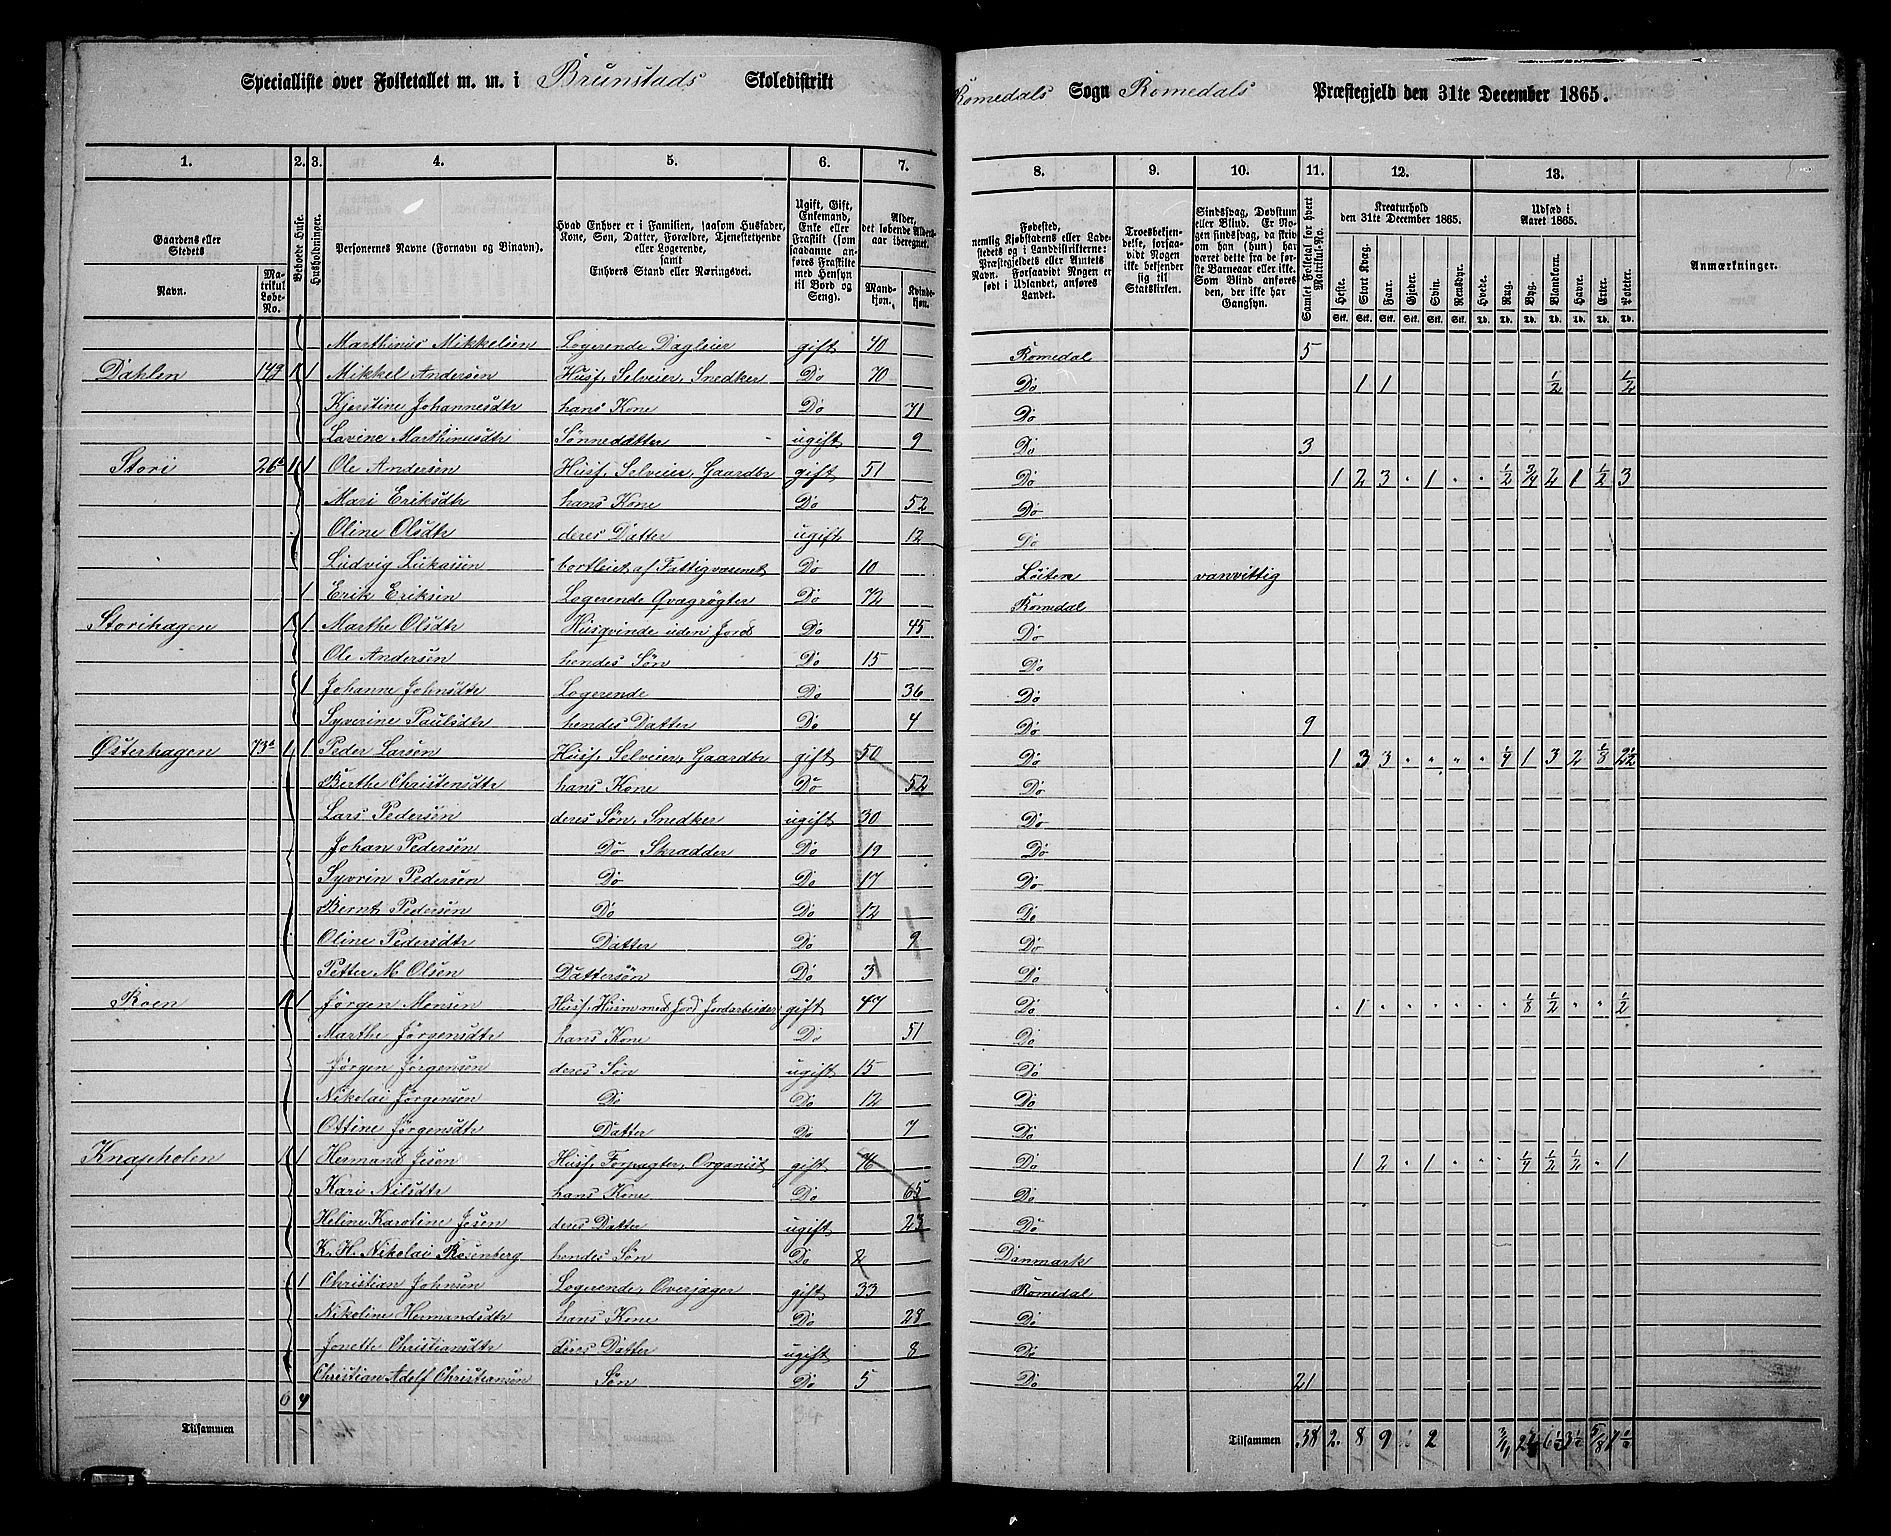 Specialliste over Folketallet m. m. i Brunstads Skoledistrikt
Romedals Sogn Romedals Præstegjeld den 31te December 1865.
1. 2. 3. 4. 5. 6. 7. 8. 9. 10. 11. 12. 13.
Gaardens eller Stedets Navn. Matrikul Løbe-No.
Beboede Huse.
Husholdninger.
Personernes Navne (Fornavn og Binavn).
Hvad Enhver er i Familien, saasom Husfader, Kone, Søn, Datter, Forældre, Tjenestetyende eller Logerende, samt Enhvers Stand eller Næringsvei.
Ugift, Gift, Enkemand, Enke eller Fraskilt (som saadanne anføres Fraskilte med Hensyn til Bord og Seng).
Alder, det løbende Aldersaar iberegnet. Mandkjøn. Kvindekjøn.
Fødested, nemlig Kjøbstadens eller Ladestedets og i Landdistrikterne: Præstegjeldets eller Amtets Navn. Forsaavidt Nogen er født i Udlandet, anføres Landet.
Troesbekjendelse, forsaavidt Nogen ikke bekjender sig til Statskirken.
Sindssvag, Døvstum eller Blind. Er Nogen sindssvag, da skrives om han (hun) har været det fra de første Barneaar eller ikke. Som Blind anføres den, der ikke har Gangsyn.
Samlet Folketal for hvert Matrikul-No.
Kreaturhold den 31te December 1865.
Heste. Stort Kvæg. Faar. Gjeder. Svin. Rensdyr.
Udsæd i Aaret 1865.
Hvede. Rug. Byg. Blandkorn. Havre. Erter. Poteter.
Stk. Stk. Stk. Stk. Stk. Stk. Td. Td. Td. Td. Td. Td. Td.
Anmærkninger.
Marthinus Mikkelsen Logerende Dagleier gift 40 Romedal 5
Dahlen 149 1 1 Mikkel Andersen Husf, Selveier, Snedker Do 70 Do 1 1 ½ ½
Kjerstine Johannesdtr hans Kone Do 71 Do
Lovine Marthinusdtr Sønnedatter ugift 9 Do 3
Stori 26 1 1 Ole Andersen Husf, Selveier, Gaardbr gift 51 Do 1 2 3 " 1 " " ½ ¾ 2 1 ½ 3
Mari Eriksdtr hans Kone Do 52 Do
Oline Olsdtr deres Datter ugift 12 Do
Ludvig Lukasen bortleiet af Fattigvæsenet Do 10 Løiten vanvittig
1 Erik Eriksen Logerende Qvægrøgter Do 72 Romedal
Storihagen 1 1 Marthe Olsdtr Husqvinde uden Jord Do 45 Do
Ole Andersen hendes Søn Do 15 Do
1 Johanne Johnsdtr Logerende Do 36 Do
Syverine Paulsdtr hendes Datter Do 4 Do 9
Østerhagen 73a 1 1 Peder Larsen Husf, Selveier, Gaardbr gift 50 Do 1 3 3 " " " " ¼ 1 3 2 ⅛ 2½
Berthe Christensdtr hans Kone Do 52 Do
Lars Pedersen deres Søn, Snedker ugift 30 Do
Johan Pedersen Do Skrædder Do 19 Do
Syvrin Pedersen Do Do 17 Do
Bernt Pedersen Do Do 12 Do
Oline Pedersdtr Datter Do 9 Do
Petter M. Olsen Dattersøn Do 3 Do
Roen 1 1 Jørgen Monsen Husf, Husm med Jord Jordarbeider gift 47 Do " 1 " " " " " " ⅛ ½ " " ½
Marthe Jørgensdtr hans Kone Do 51 Do
Jørgen Jørgensen deres Søn ugift 15 Do
Nikolai Jørgensen Do Do 12 Do
Ottine Jørgensdtr Datter Do 7 Do
Knapeholen 1 1 Hermand Jesen Husf, Forpagter, Organist gift 76 Do 1 2 " 1 " " ¼ ½ ½ " 1
Kari Nilsdtr hans Kone Do 65 Do
Heline Karoline Jesen deres Datter ugift 23 Do
K. H. Nikolai Rosenberg hendes Søn Do 2 Danmark
1 Christian Johnsen Logerende, Overjæger gift 33 Romedal
Nikoline Hermandsdtr hans Kone Do 28 Do
Jonette Christiansdtr deres Datter ugift 8 Do
Christian Adolf Christiansen Søn Do 5 Do 21
6 9
Tilsammen
Tilsammen 38 2 8 9 2